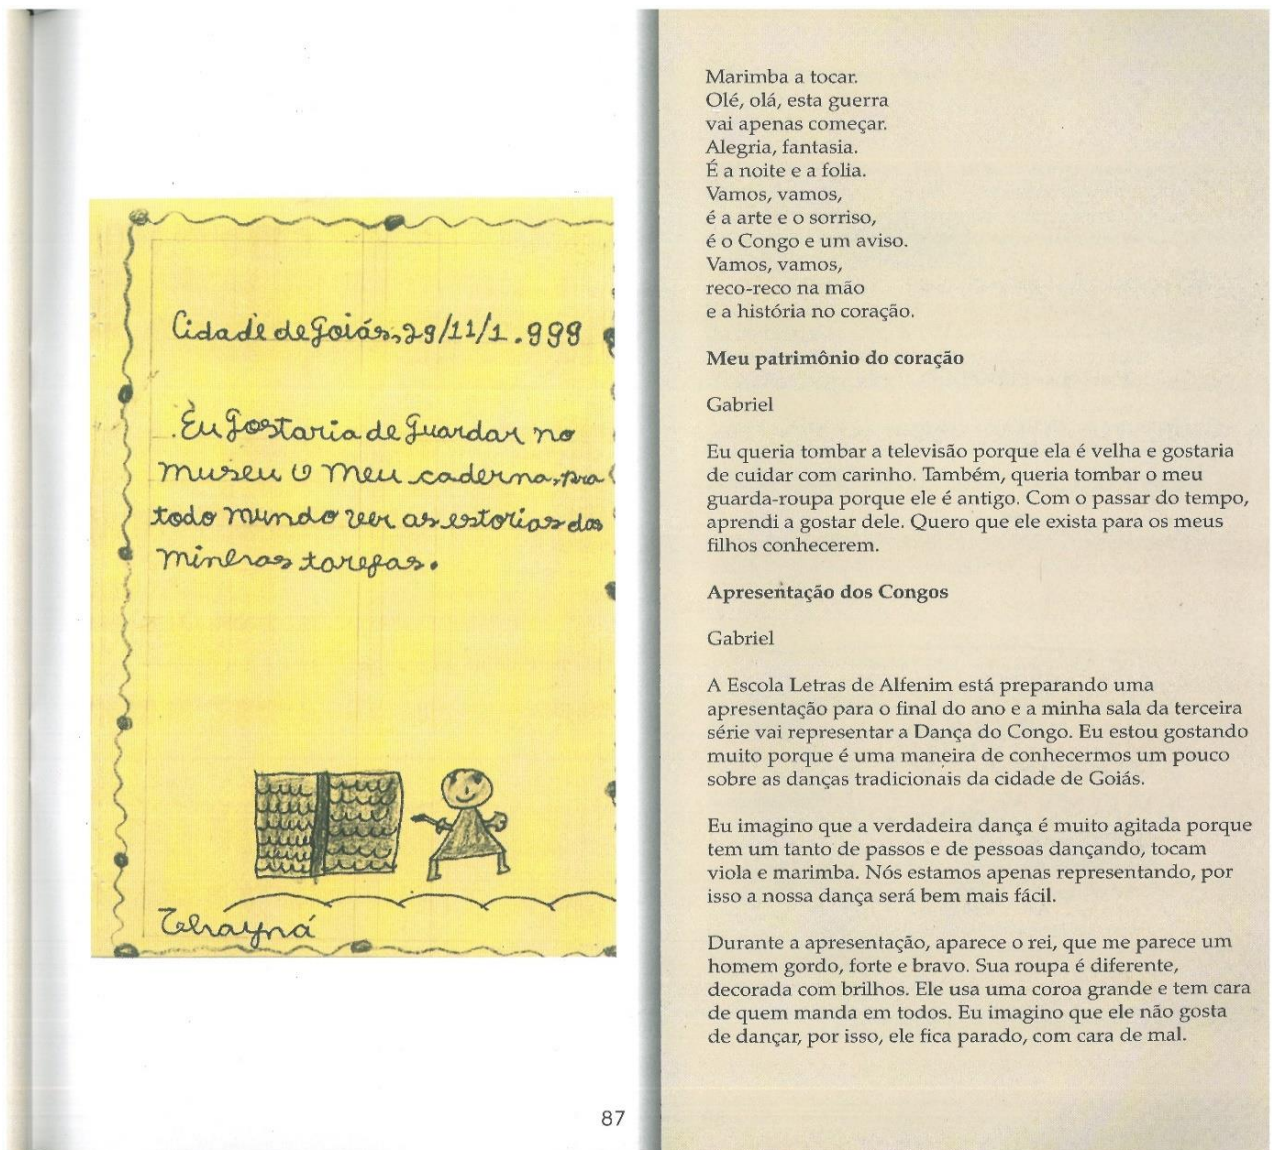 Cidade de Goiás, 29/11/1.999
Eu Gostaria de Guardar no
museu o meu caderno, pra
todo mundo ver as estorias das
minhas tarefas.
Thayná
87
Marimba a tocar.
Olé, olá, esta guerra
vai apenas começar.
Alegria, fantasia.
É a noite e a folia.
Vamos, vamos,
é a arte e o sorriso,
é o Congo e um aviso.
Vamos, vamos,
reco-reco na mão
e a história no coração.
Meu patrimônio do coração
Gabriel
Eu queria tombar a televisão porque ela é velha e gostaria
de cuidar com carinho. Também, queria tombar o meu
guarda-roupa porque ele é antigo. Com o passar do tempo,
aprendi a gostar dele. Quero que ele exista para os meus
filhos conhecerem.
Apresentação dos Congos
Gabriel
A Escola Letras de Alfenim está preparando uma
apresentação para o final do ano e a minha sala da terceira
série vai representar a Dança do Congo. Eu estou gostando
muito porque é uma maneira de conhecermos um pouco
sobre as danças tradicionais da cidade de Goiás.
Eu imagino que a verdadeira dança é muito agitada porque
tem um tanto de passos e de pessoas dançando, tocam
viola e marimba. Nós estamos apenas representando, por
isso a nossa dança será bem mais fácil.
Durante a apresentação, aparece o rei, que me parece um
homem gordo, forte e bravo. Sua roupa é diferente,
decorada com brilhos. Ele usa uma coroa grande e tem cara
de quem manda em todos. Eu imagino que ele não gosta
de dançar, por isso, ele fica parado, com cara de mal.